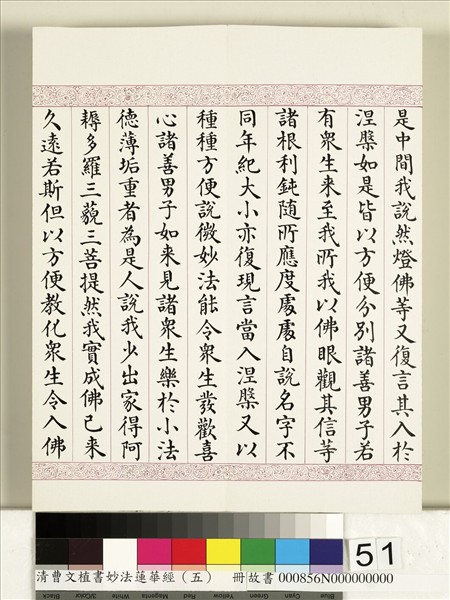 是中間我說然燈佛等又復言其入於
涅槃如是皆以方便分別諸善男子若
有眾生来至我所我以佛眼觀其信等
諸根利鈍随所應度處處自說名字不
同年紀大小亦復現言當入涅槃又以
種種方便說微妙法能令眾生發歡喜
心諸善男子如来見諸眾生樂於小法
德薄垢重者為是人說我少出家得阿
耨多羅三藐三菩提然我實成佛已来
久遠若斯但以方便教化眾生令入佛
51
清曹文植書妙法蓮華經（五） 冊故書 000856N000000000
Black 3/Color White Magenta Red Yellow Green Cyan Blue